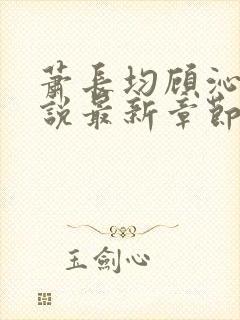 萧長均顧沁
説最新章節
玉劍心